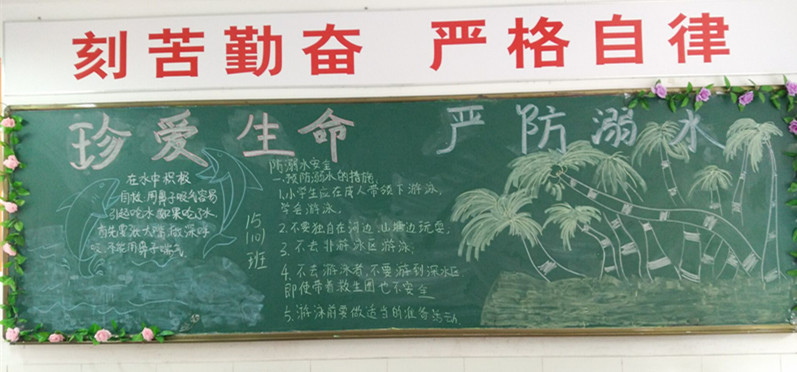 刻苦勤奋 严格自律
珍爱生命 严防溺水
在水中积极
自救,用鼻子吸气容易
引起呛水
首先要张大嘴做深呼
吸,不能用鼻子喘气
15(10)班
防溺水安全
一、预防溺水的措施:
1.小学生应在成人带领下游泳,
学会游泳。
2.不要独自在河边、山塘边玩耍
3.不去非游泳区游泳
4.不会游泳者,不要游到深水区
即使带着救生圈也不安全
5.游泳前要做适当的准备活动